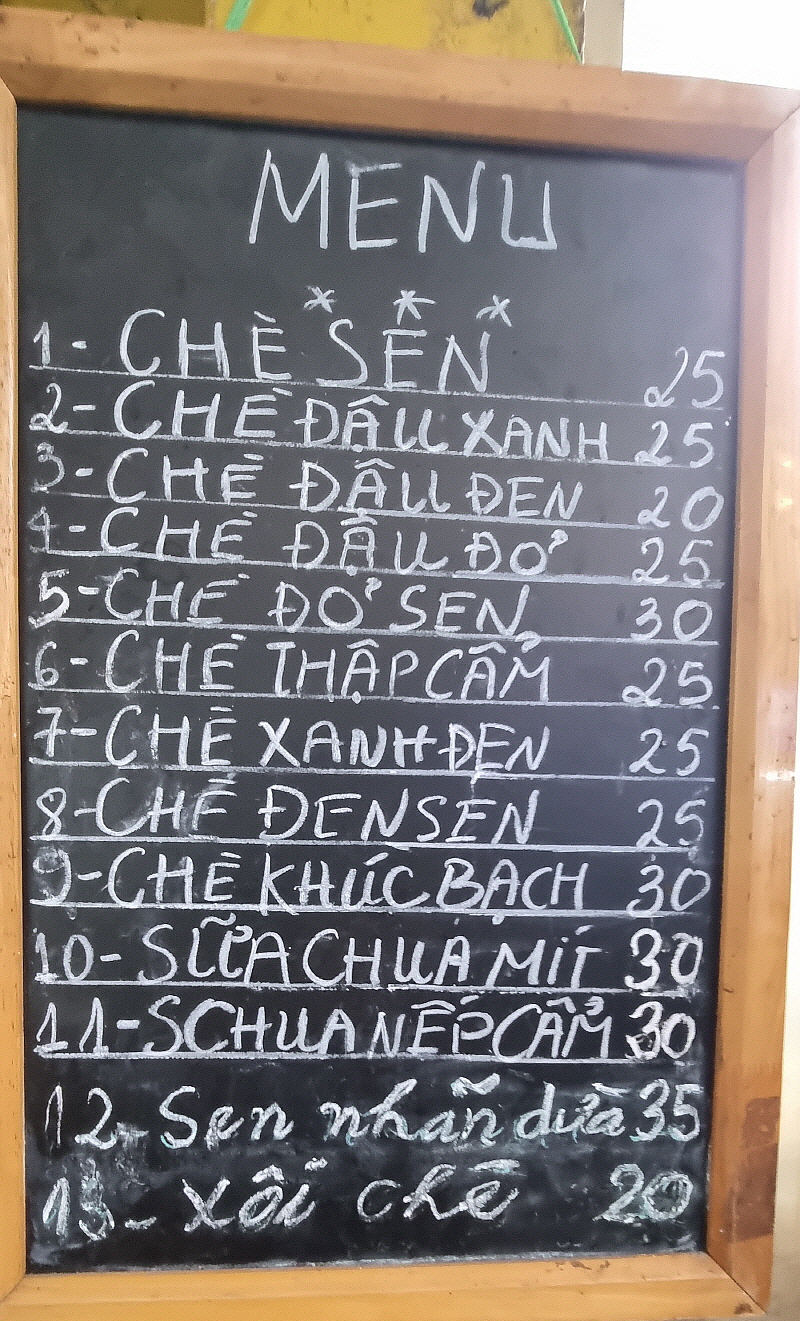 MENU
* * *
1- CHÈ SEN 25
2- CHÈ ĐẬU XANH 25
3- CHÈ ĐẬU ĐEN 20
4- CHÈ ĐẬU ĐỎ 25
5- CHÈ ĐỎ SEN 30
6- CHÈ THẬP CẨM 25
7- CHÈ XANH ĐEN 25
8- CHÈ ĐEN SEN 25
9- CHÈ KHÚC BẠCH 30
10- SỮA CHUA MÍT 30
11- SCHUA NẾP CẨM 30
12- Sen nhãn dừa 35
13- xôi chè 20